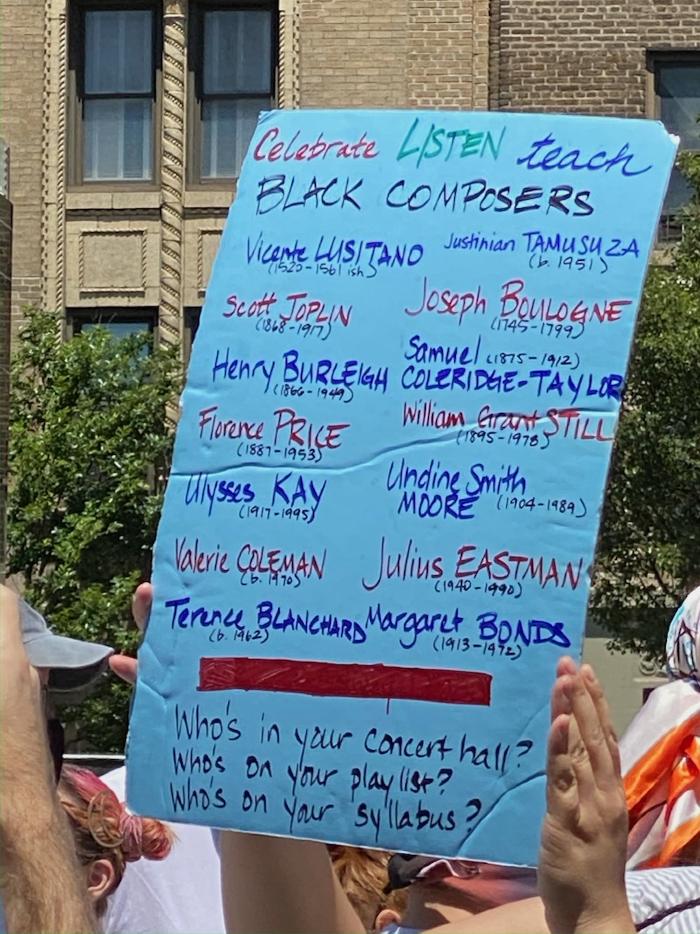 Celebrate LISTEN teach
BLACK COMPOSERS
Vicente LUSITANO
(1520-1561 ish)
Justinian TAMUSUZA
(b. 1951)
Scott JOPLIN
(1868-1917)
Joseph BOULOGNE
(1745-1799)
Henry BURLEIGH
(1866-1949)
Samuel (1875-1912)
COLERIDGE-TAYLOR
Florence PRICE
(1887-1953)
William Grant STILL
(1895-1978)
Ulysses KAY
(1917-1995)
Undine Smith
MOORE (1904-1989)
Valerie COLEMAN
(b. 1970)
Julius EASTMAN
(1940-1990)
Terence BLANCHARD
(b. 1962)
Margaret BONDS
(1913-1972)
Who's in your concert hall?
Who's on your playlist?
Who's on your syllabus?